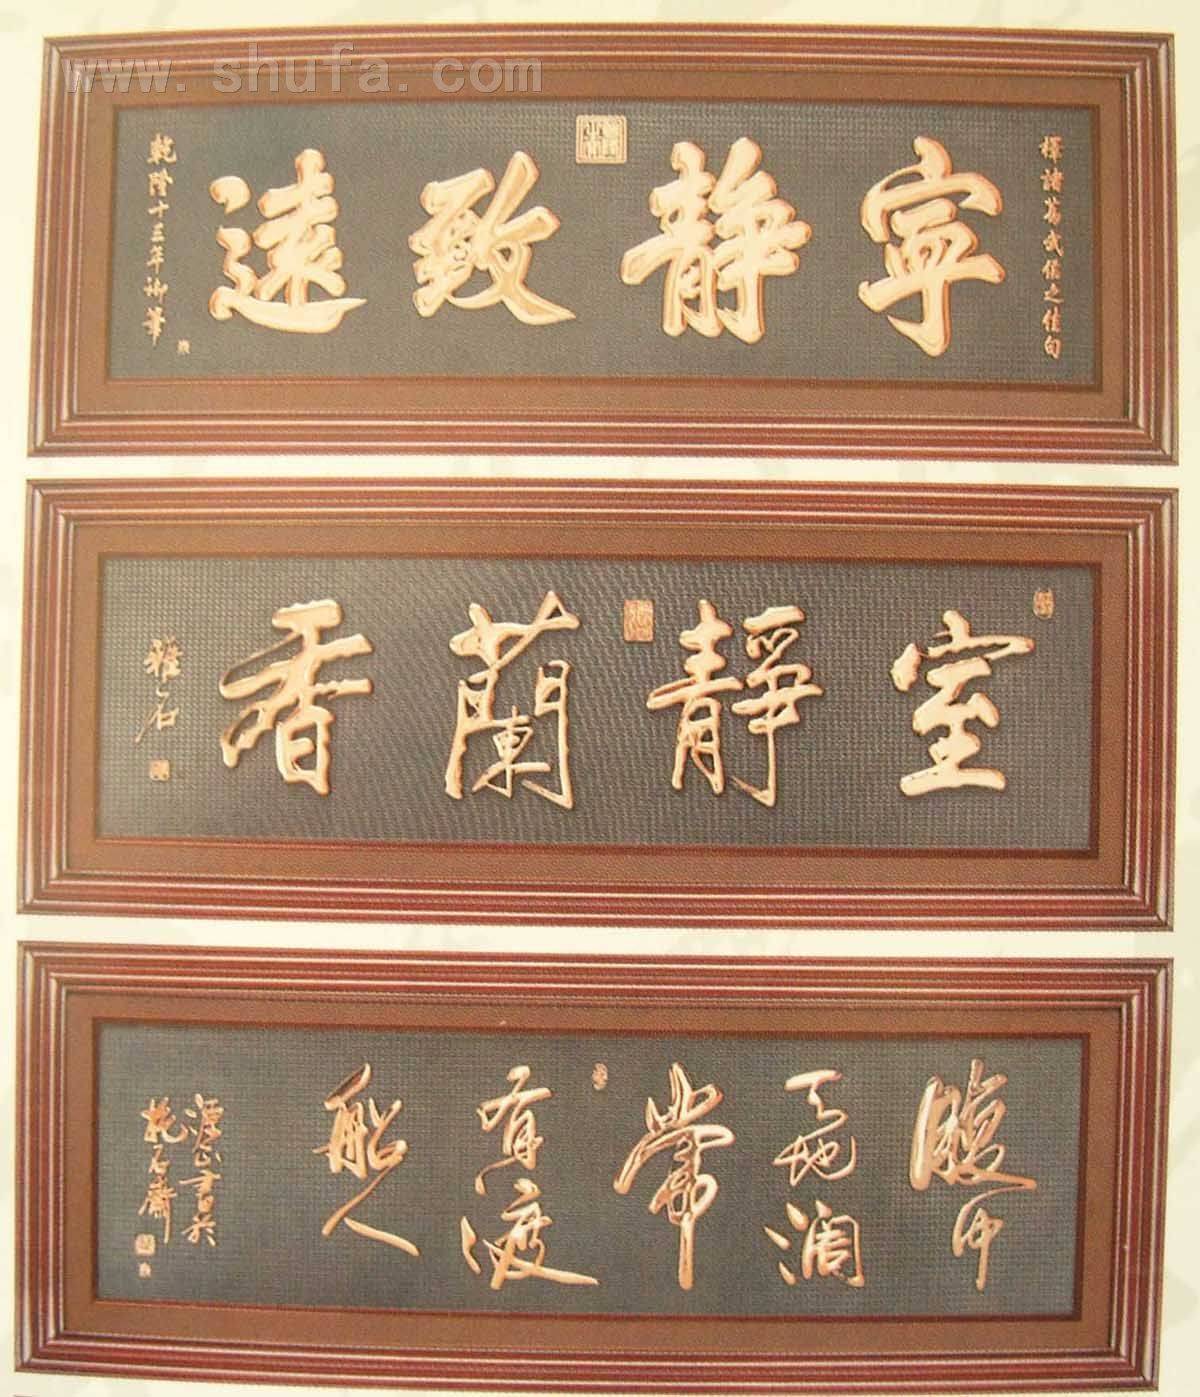 www.shufa.com
擇諸葛武侯之佳句
寧靜致遠
乾隆十三年御筆
室靜蘭香
雅石
腹中
天地闊
常
有渡
船人
書於
石齋